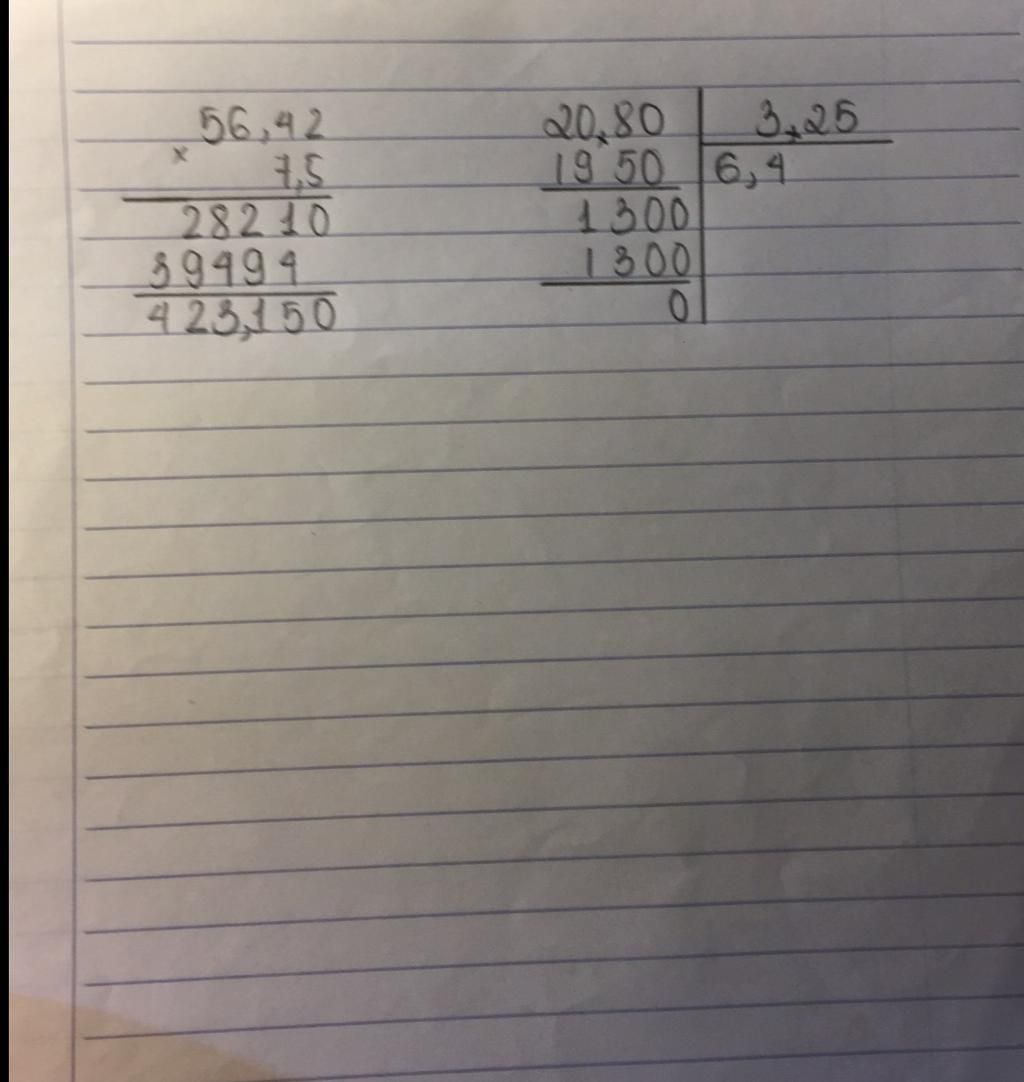 56,42
× 7,5
28210
39494
423,150
20,80 3,25
19 50 6,4
1300
1300
0